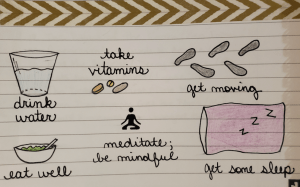 take
vitamins
get moving
drink
water
meditate;
be mindful
z z z
eat well
get some sleep